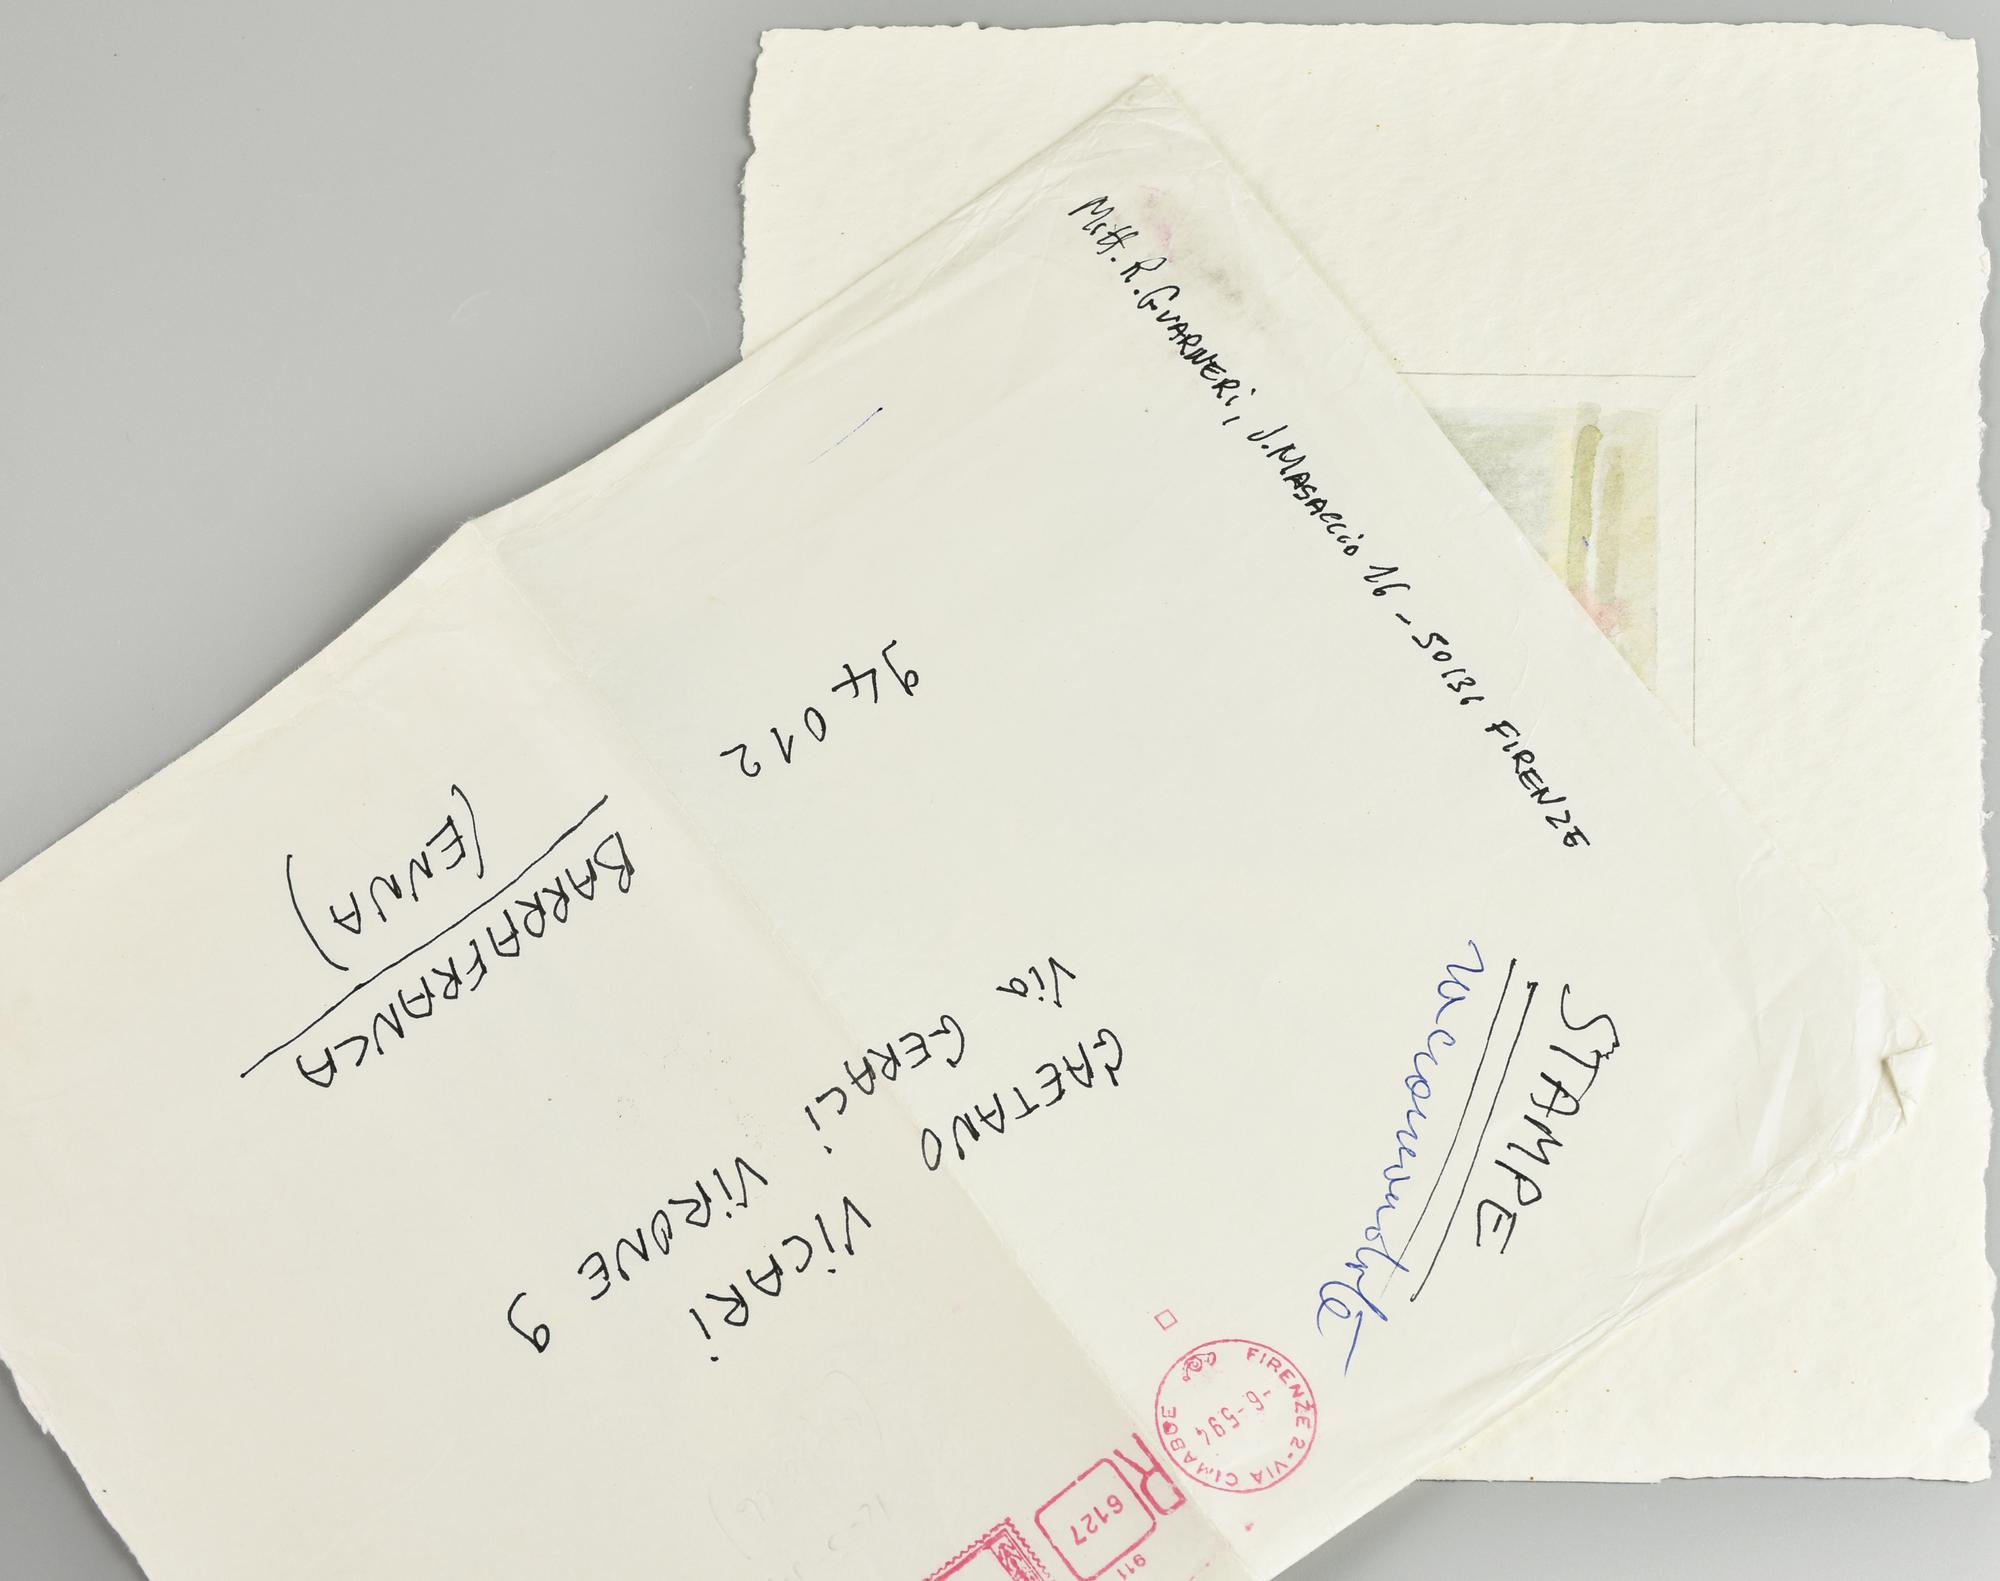 Mitt. R. GUARNERI, V. MASACCIO 16 - 50136 FIRENZE
STAMPE
raccomandate
GAETANO VICARI
Via GERACI VIRONE 9
94012
BARRAFRANCA
(ENNA)
FIRENZE 2 - VIA CIMABUE
-6-594
R
6127
911